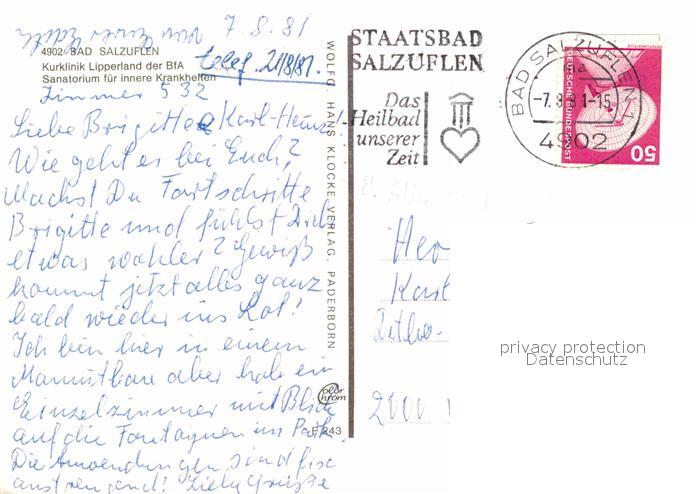 7.8.81
4902 BAD SALZUFLEN
Kurklinik Lipperland der BfA
Sanatorium für innere Krankheiten
telef. 21/8/81.
Zimmer 532
Liebe Brigitte & Karl-Heinz!
Wie geht es bei Euch?
Machst Du Fortschritte
Brigitte und fühlst Dich
etwas wohler? Gewiß
kommt jetzt alles ganz
bald wieder ins Lot!
Ich bin hier in einem
aber hab ein
Einzelzimmer mit Blick
auf die Fontaynen im Park.
Die Anwendungen sind
anstrengend! Liebe Grüße
WOLFG. HANS KLOCKE VERLAG, PADERBORN
Color Chrom
F 243
STAATSBAD
SALZUFLEN
Das
Heilbad
unserer
Zeit
BAD SALZUFLEN 1
-7.8.81-15
4902
DEUTSCHE BUNDESPOST
50
Her
Karl
2000
privacy protection
Datenschutz